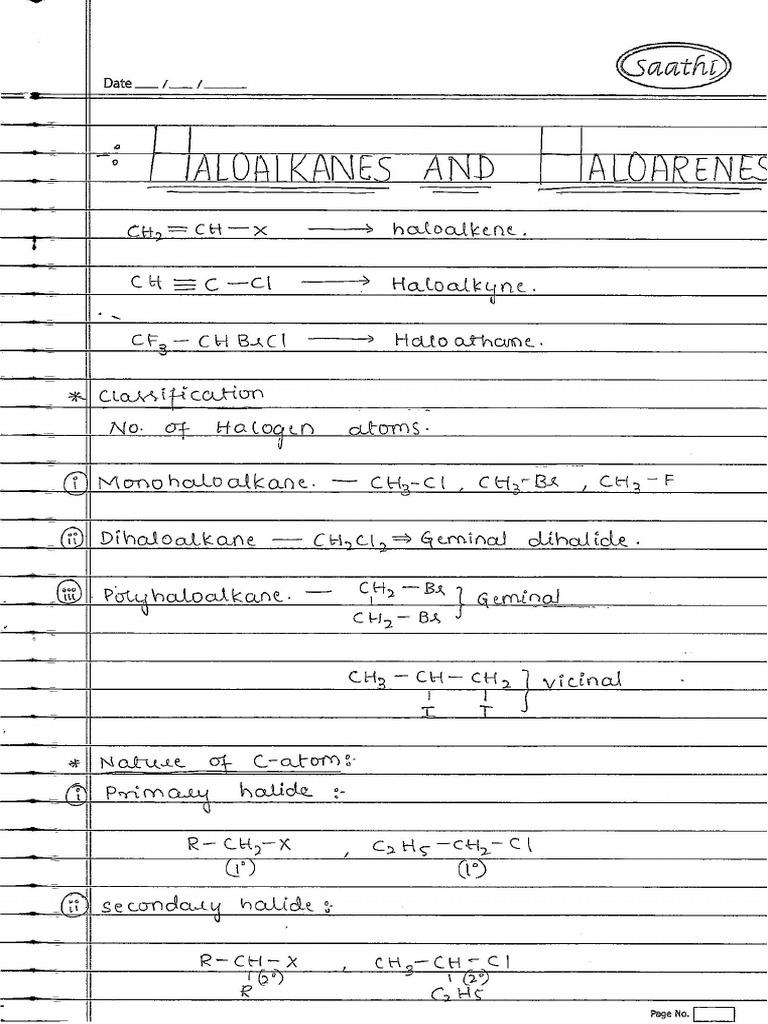 Saathi
Date __ / __ / ____
-: HALOALKANES AND HALOARENES
CH₂ = CH – X ⟶ haloalkene.
CH ≡ C – Cl ⟶ Haloalkyne.
CF₃ – CHBrCl ⟶ Haloathane.
* Classification
No. of Halogen atoms.
(i) Monohaloalkane. – CH₃-Cl , CH₃-Br , CH₃-F
(ii) Dihaloalkane – CH₂Cl₂ ⇒ Geminal dihalide.
(iii) Polyhaloalkane. – CH₂ – Br } Geminal
CH₂ – Br
CH₃ – CH – CH₂ } vicinal
I I
* Nature of C-atom:-
(i) Primary halide :-
R – CH₂ – X , C₂H₅ – CH₂ – Cl
(1°) (1°)
(ii) secondary halide :-
R – CH – X , CH₃ – CH – Cl
(2°) (2°)
R C₂H₅
Page No.